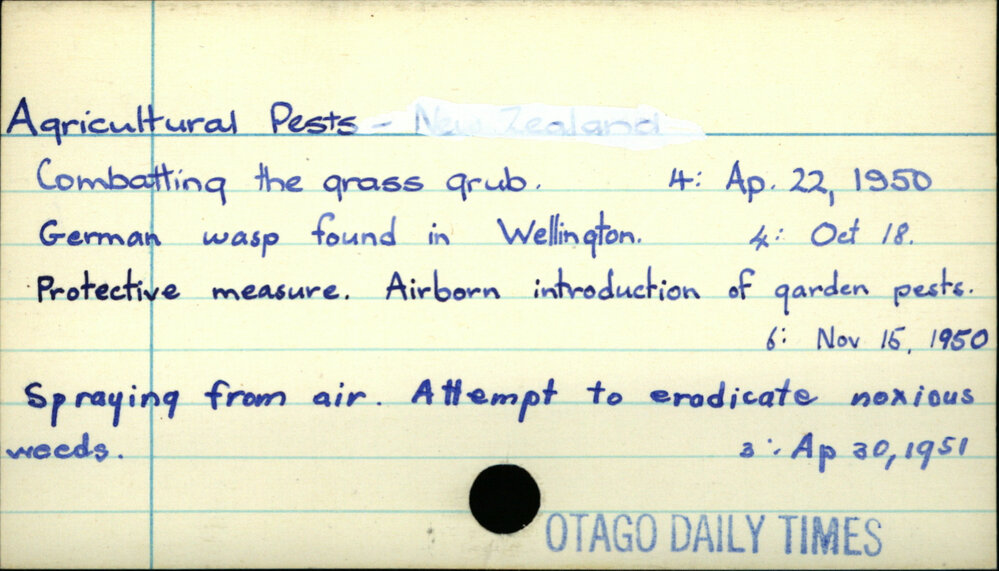 Agricultural Pests - New Zealand
Combatting the grass grub. 4: Ap. 22, 1950
German wasp found in Wellington. 4: Oct 18.
Protective measure. Airborn introduction of garden pests.
6: Nov 15, 1950
Spraying from air. Attempt to eradicate noxious
weeds. 3: Ap 30, 1951
OTAGO DAILY TIMES